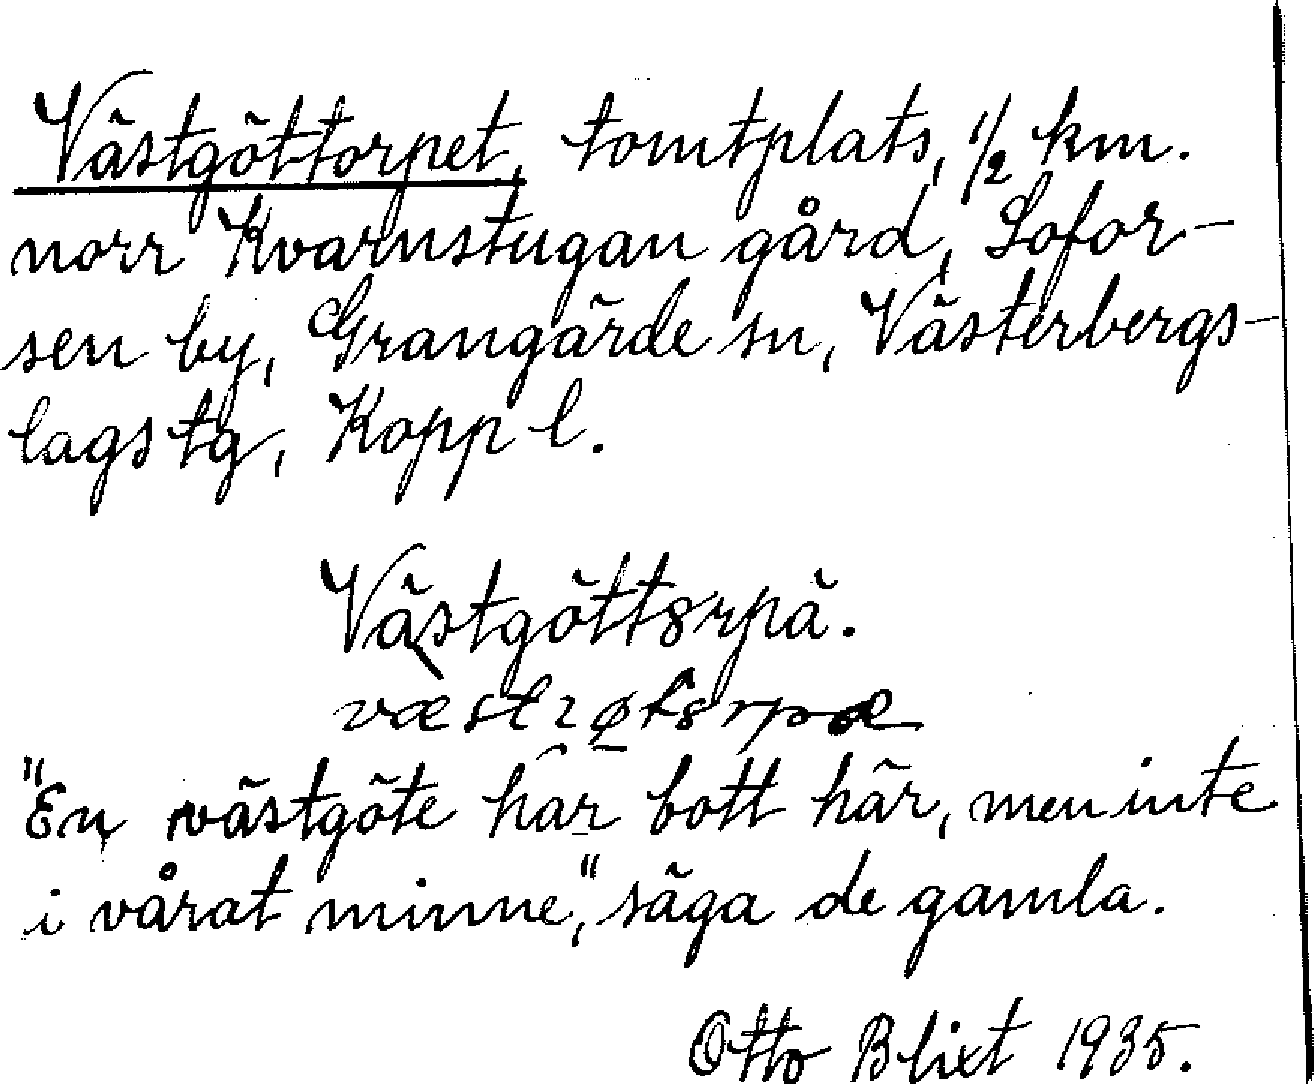 Västgöttorpet, tomtplats, 1/2 km.
norr Kvarnstugan gård, Lofor-
sen by, Grangärde sn, Västerbergs-
lags tg, Kopp l.
Västgöttɞrpä.
"En västgöte har bott här, men inte
i vårat minne", säga de gamla.
Otto Blixt 1935.